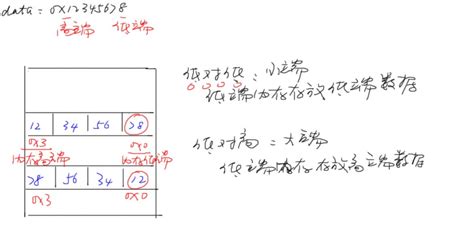 data = 0x12345678
高端 低端
低对低：小端
低端内存存放低端数据
12 34 56 78
0x3 0x0
内存高端 内存低端
低对高 = 大端
低端内存存放高端数据
78 56 34 12
0x3 0x0